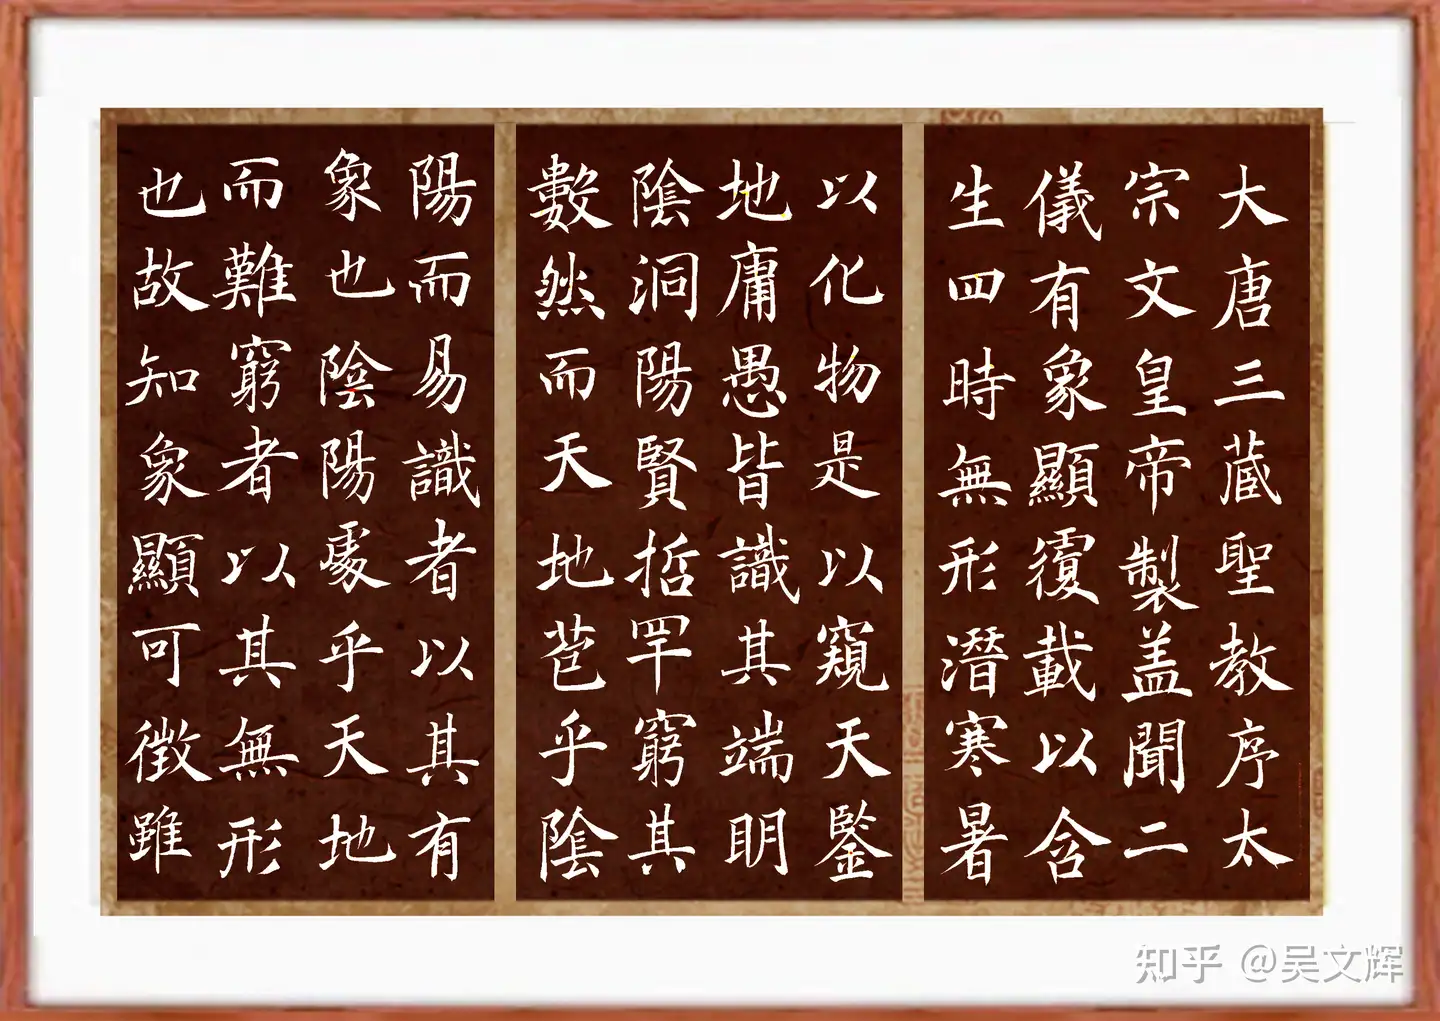 大唐三藏聖教序太
宗文皇帝製盖聞二
儀有象顯覆載以含
生四時無形潛寒暑
以化物是以窺天鑒
地庸愚皆識其端明
陰洞陽賢哲罕窮其
數然而天地苞乎陰
陽而易識者以其有
象也陰陽處乎天地
而難窮者以其無形
也故知象顯可徵雖
知乎 @吴文辉